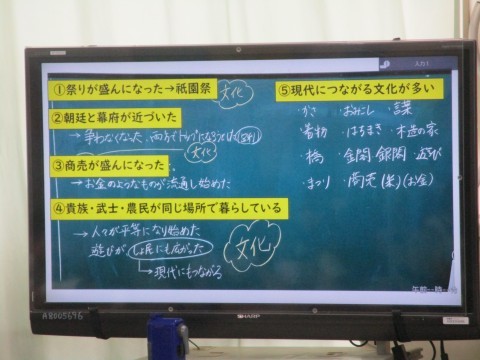 入力1
①祭りが盛んになった→祇園祭
文化
②朝廷と幕府が近づいた
→争わなくなった、両方でトップになろうとした
文化
③商売が盛んになった
→お金のようなものが流通し始めた
④貴族・武士・農民が同じ場所で暮らしている
→人々が平等になり始めた
遊びがしょ民にも広がった
→現代にもつながる
文化
⑤現代につながる文化が多い
・かさ ・おみこし
・着物 ・はちまき ・木造の家
・橋 ・金閣・銀閣 ・遊び
・まつり ・商売(米)(お金)
午前
A8005676
SHARP